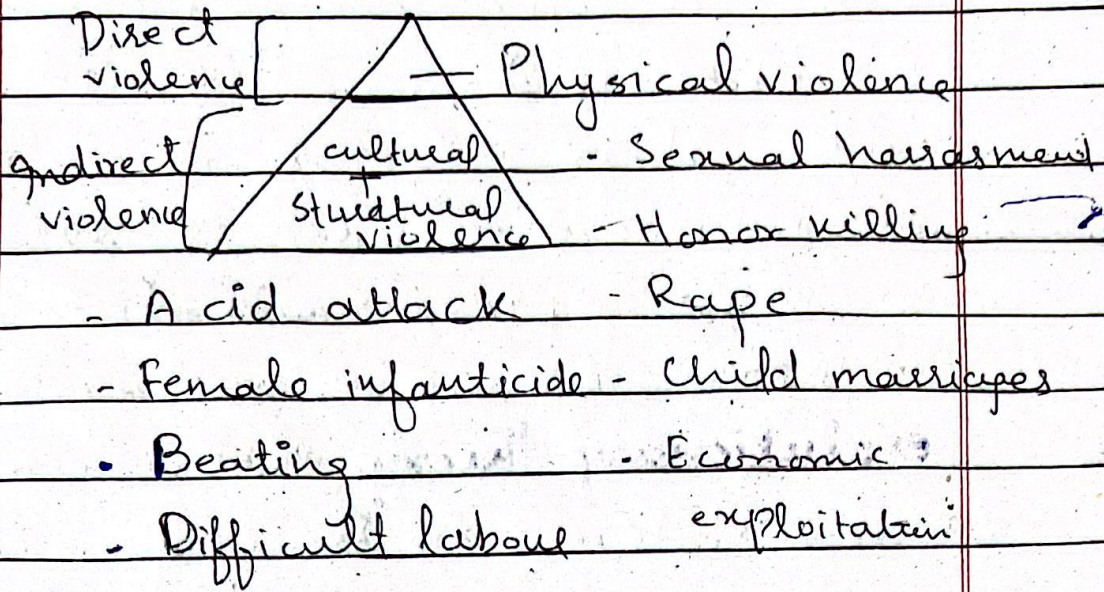 Direct
violence
Physical violence
Indirect
violence
cultural
+
Structural
violence
- Sexual harrasment
- Honor killing
- Acid attack - Rape
- Female infanticide - Child marriages
• Beating - Economic
exploitation
- Difficult labour